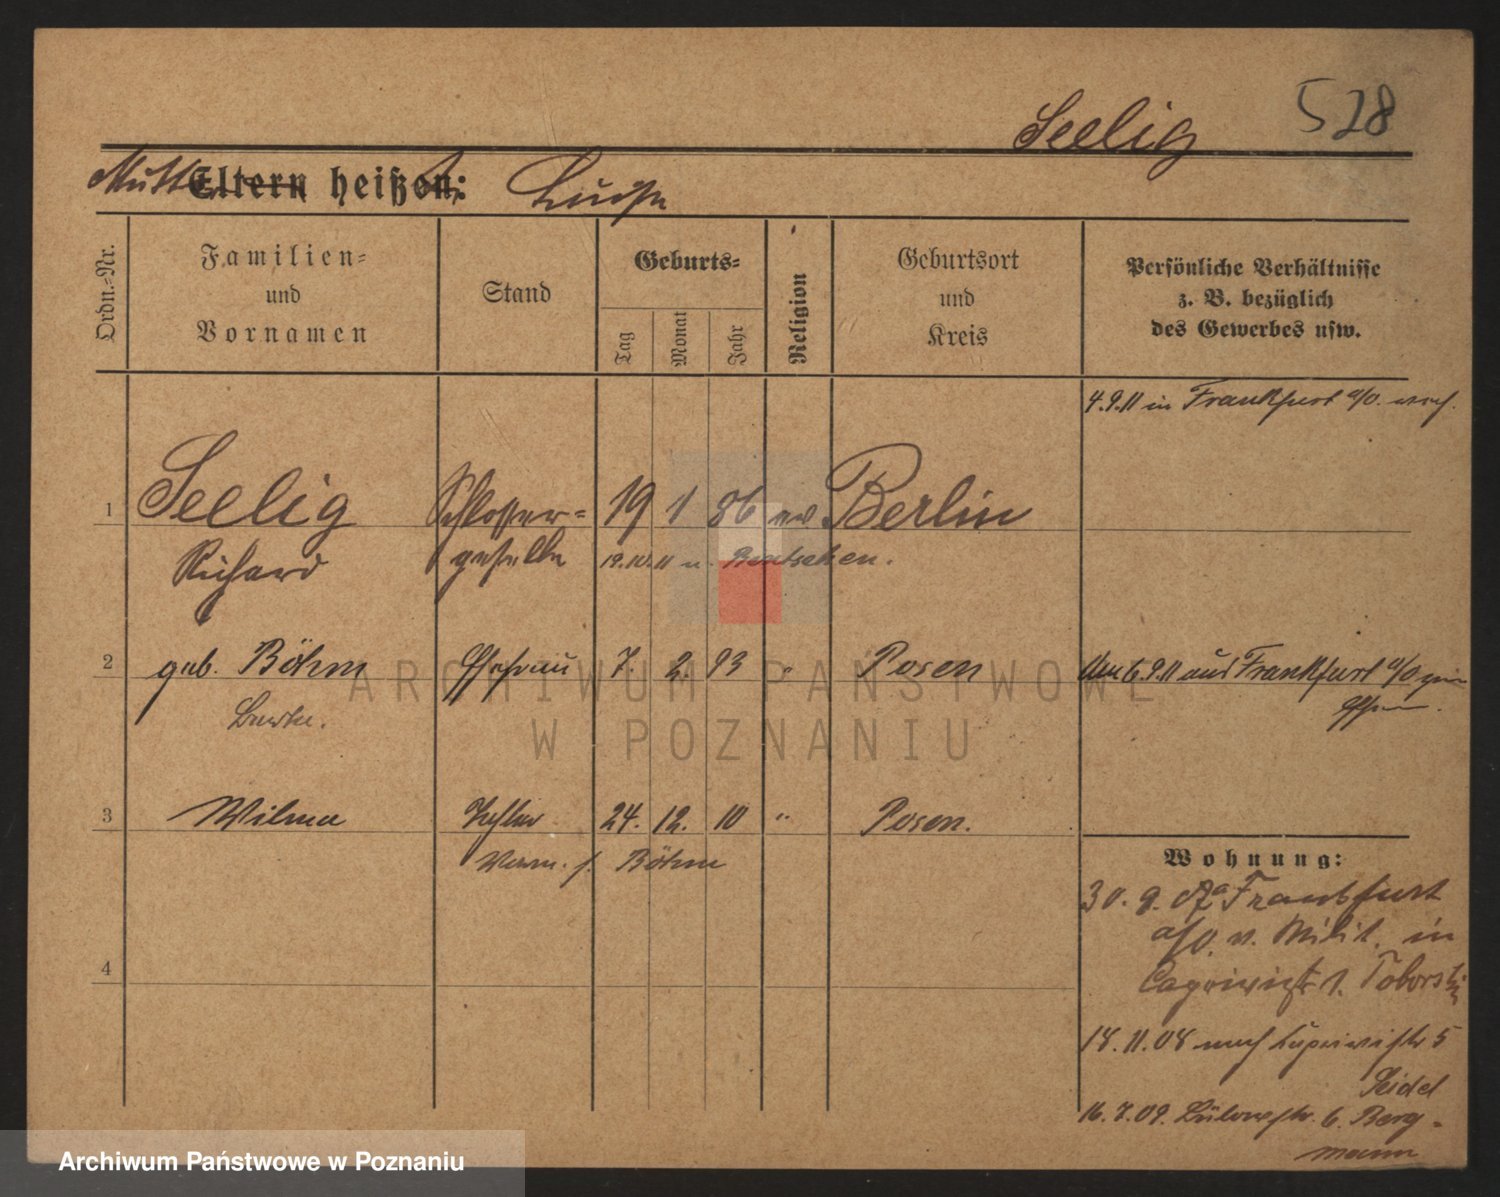 Seelig 528
Mutter heißt: Luise
Eltern heißen:
Ordn.-Nr.
Familien-
und
Vornamen
Stand
Geburts-
Tag
Monat
Jahr
Religion
Geburtsort
und
Kreis
Persönliche Verhältnisse
z. B. bezüglich
des Gewerbes usw.
4.9.11 in Frankfurt a/O.
1 Seelig Schlosser= 19 1 86 ev Berlin
Richard geselle 19.10.11 n. Bentschen.
2 geb. Böhm Ehefrau 7. 2. 93 " Posen 6.9.11 aus Frankfurt a/O
3 Wilma Tochter 24. 12. 10 " Posen.
Vorm. f. Böhm
4
Wohnung:
30. 9. 07 Frankfurt
a/O. v. Milit. in
Caprivistr 1.
18.11.08 nach Caprivistr 5
Seidel
16.7.09. Bülowstr. 6. Berg-
mann
ARCHIWUM PAŃSTWOWE
W POZNANIU
Archiwum Państwowe w Poznaniu